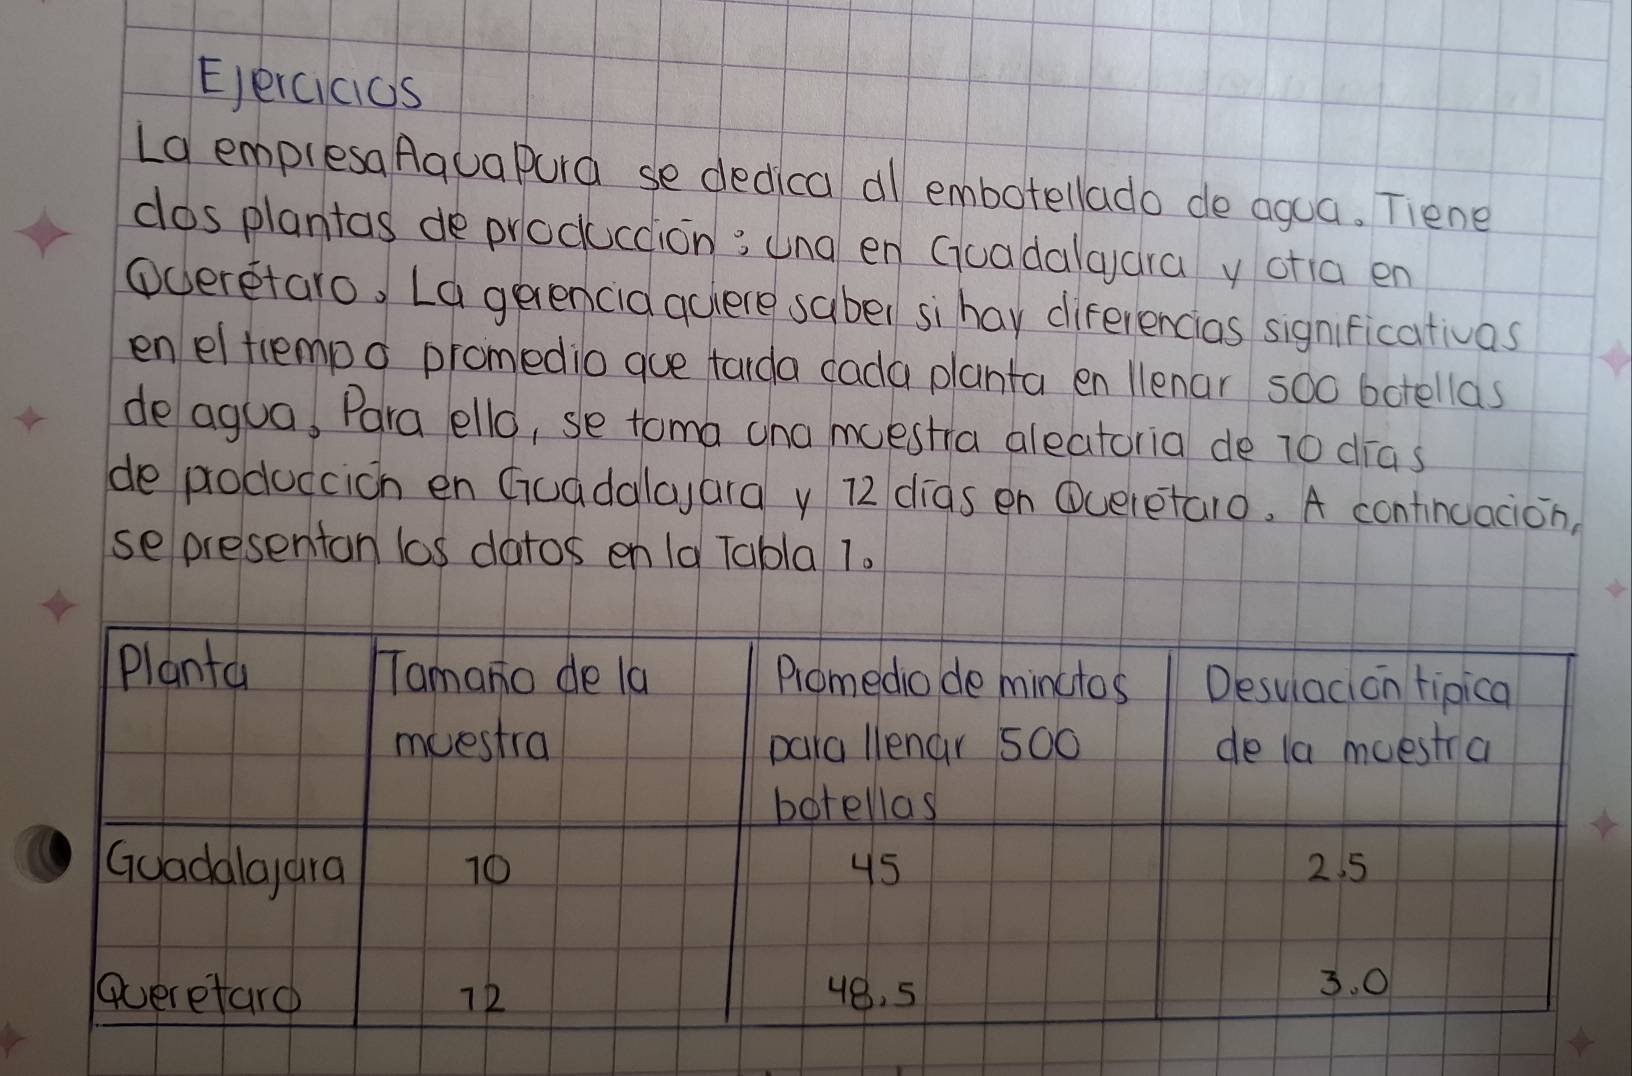 Ejercicios
La empresa AquaPura se dedica al embotellado de agua. Tiene
dos plantas de producción: una en Guadalajara y otra en
Querétaro. La gerencia quiere saber si hay diferencias significativas
en el tiempo promedio que tarda cada planta en llenar 500 botellas
de agua. Para ello, se toma una muestra aleatoria de 10 días
de producción en Guadalajara y 12 días en Querétaro. A continuación,
se presentan los datos en la Tabla 1.
Planta Tamaño de la muestra Promedio de minutos para llenar 500 botellas Desviación típica de la muestra
Guadalajara 10 45 2.5
Querétaro 12 48.5 3.0